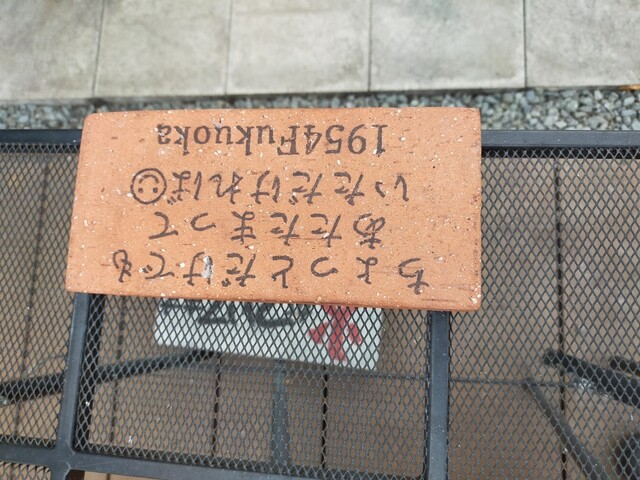 ちょっとだけでも
あたたまって
いただければ☺
1954Fukuoka